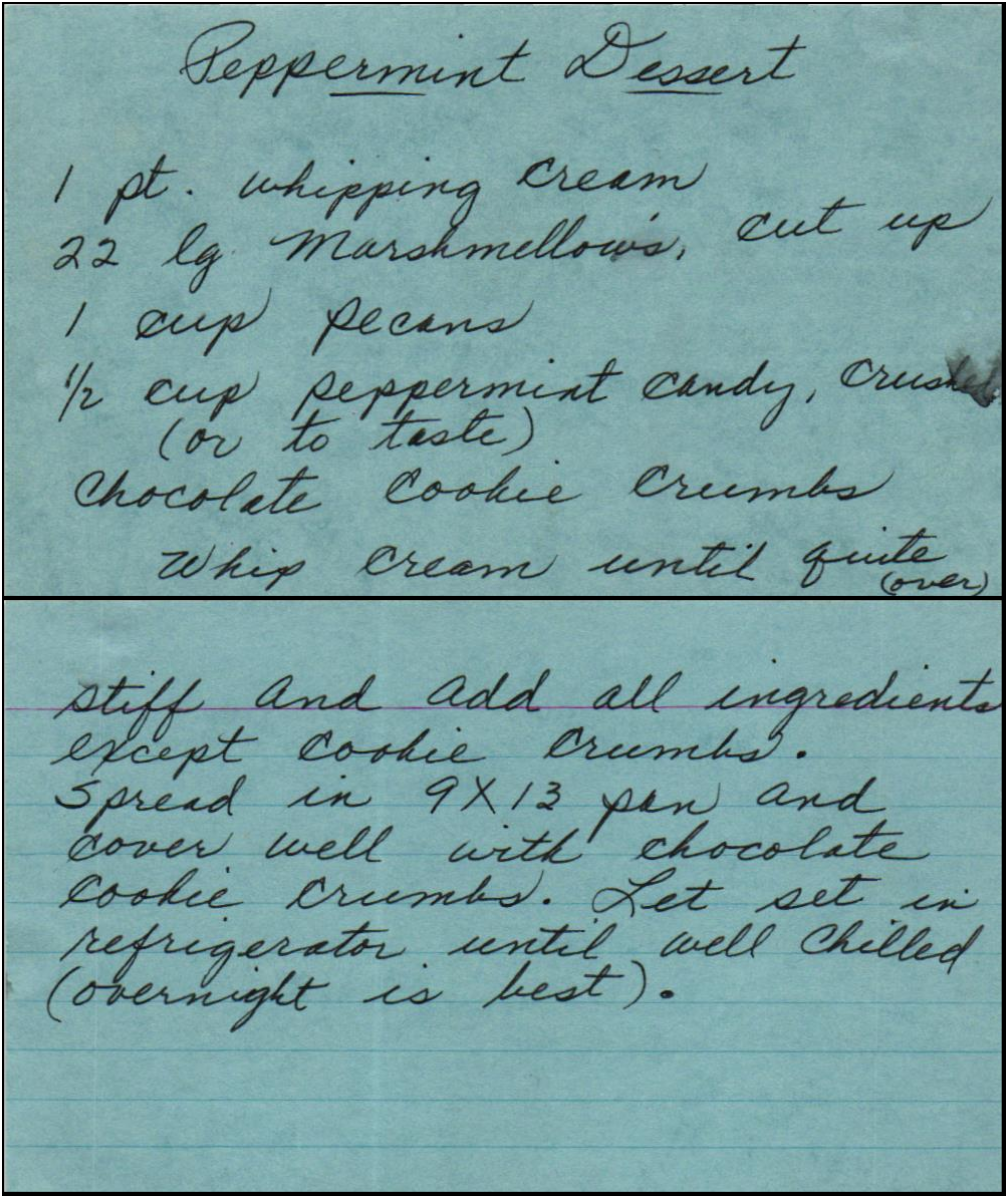 Peppermint Dessert
1 pt. whipping cream
22 lg. Marshmellows, cut up
1 cup pecans
1/2 cup peppermint candy, crushed
(or to taste)
Chocolate Cookie Crumbs
Whip cream until quite
(over)
stiff and add all ingredients
except cookie crumbs.
Spread in 9X13 pan and
cover well with chocolate
cookie crumbs. Let set in
refrigerator until well chilled
(overnight is best).